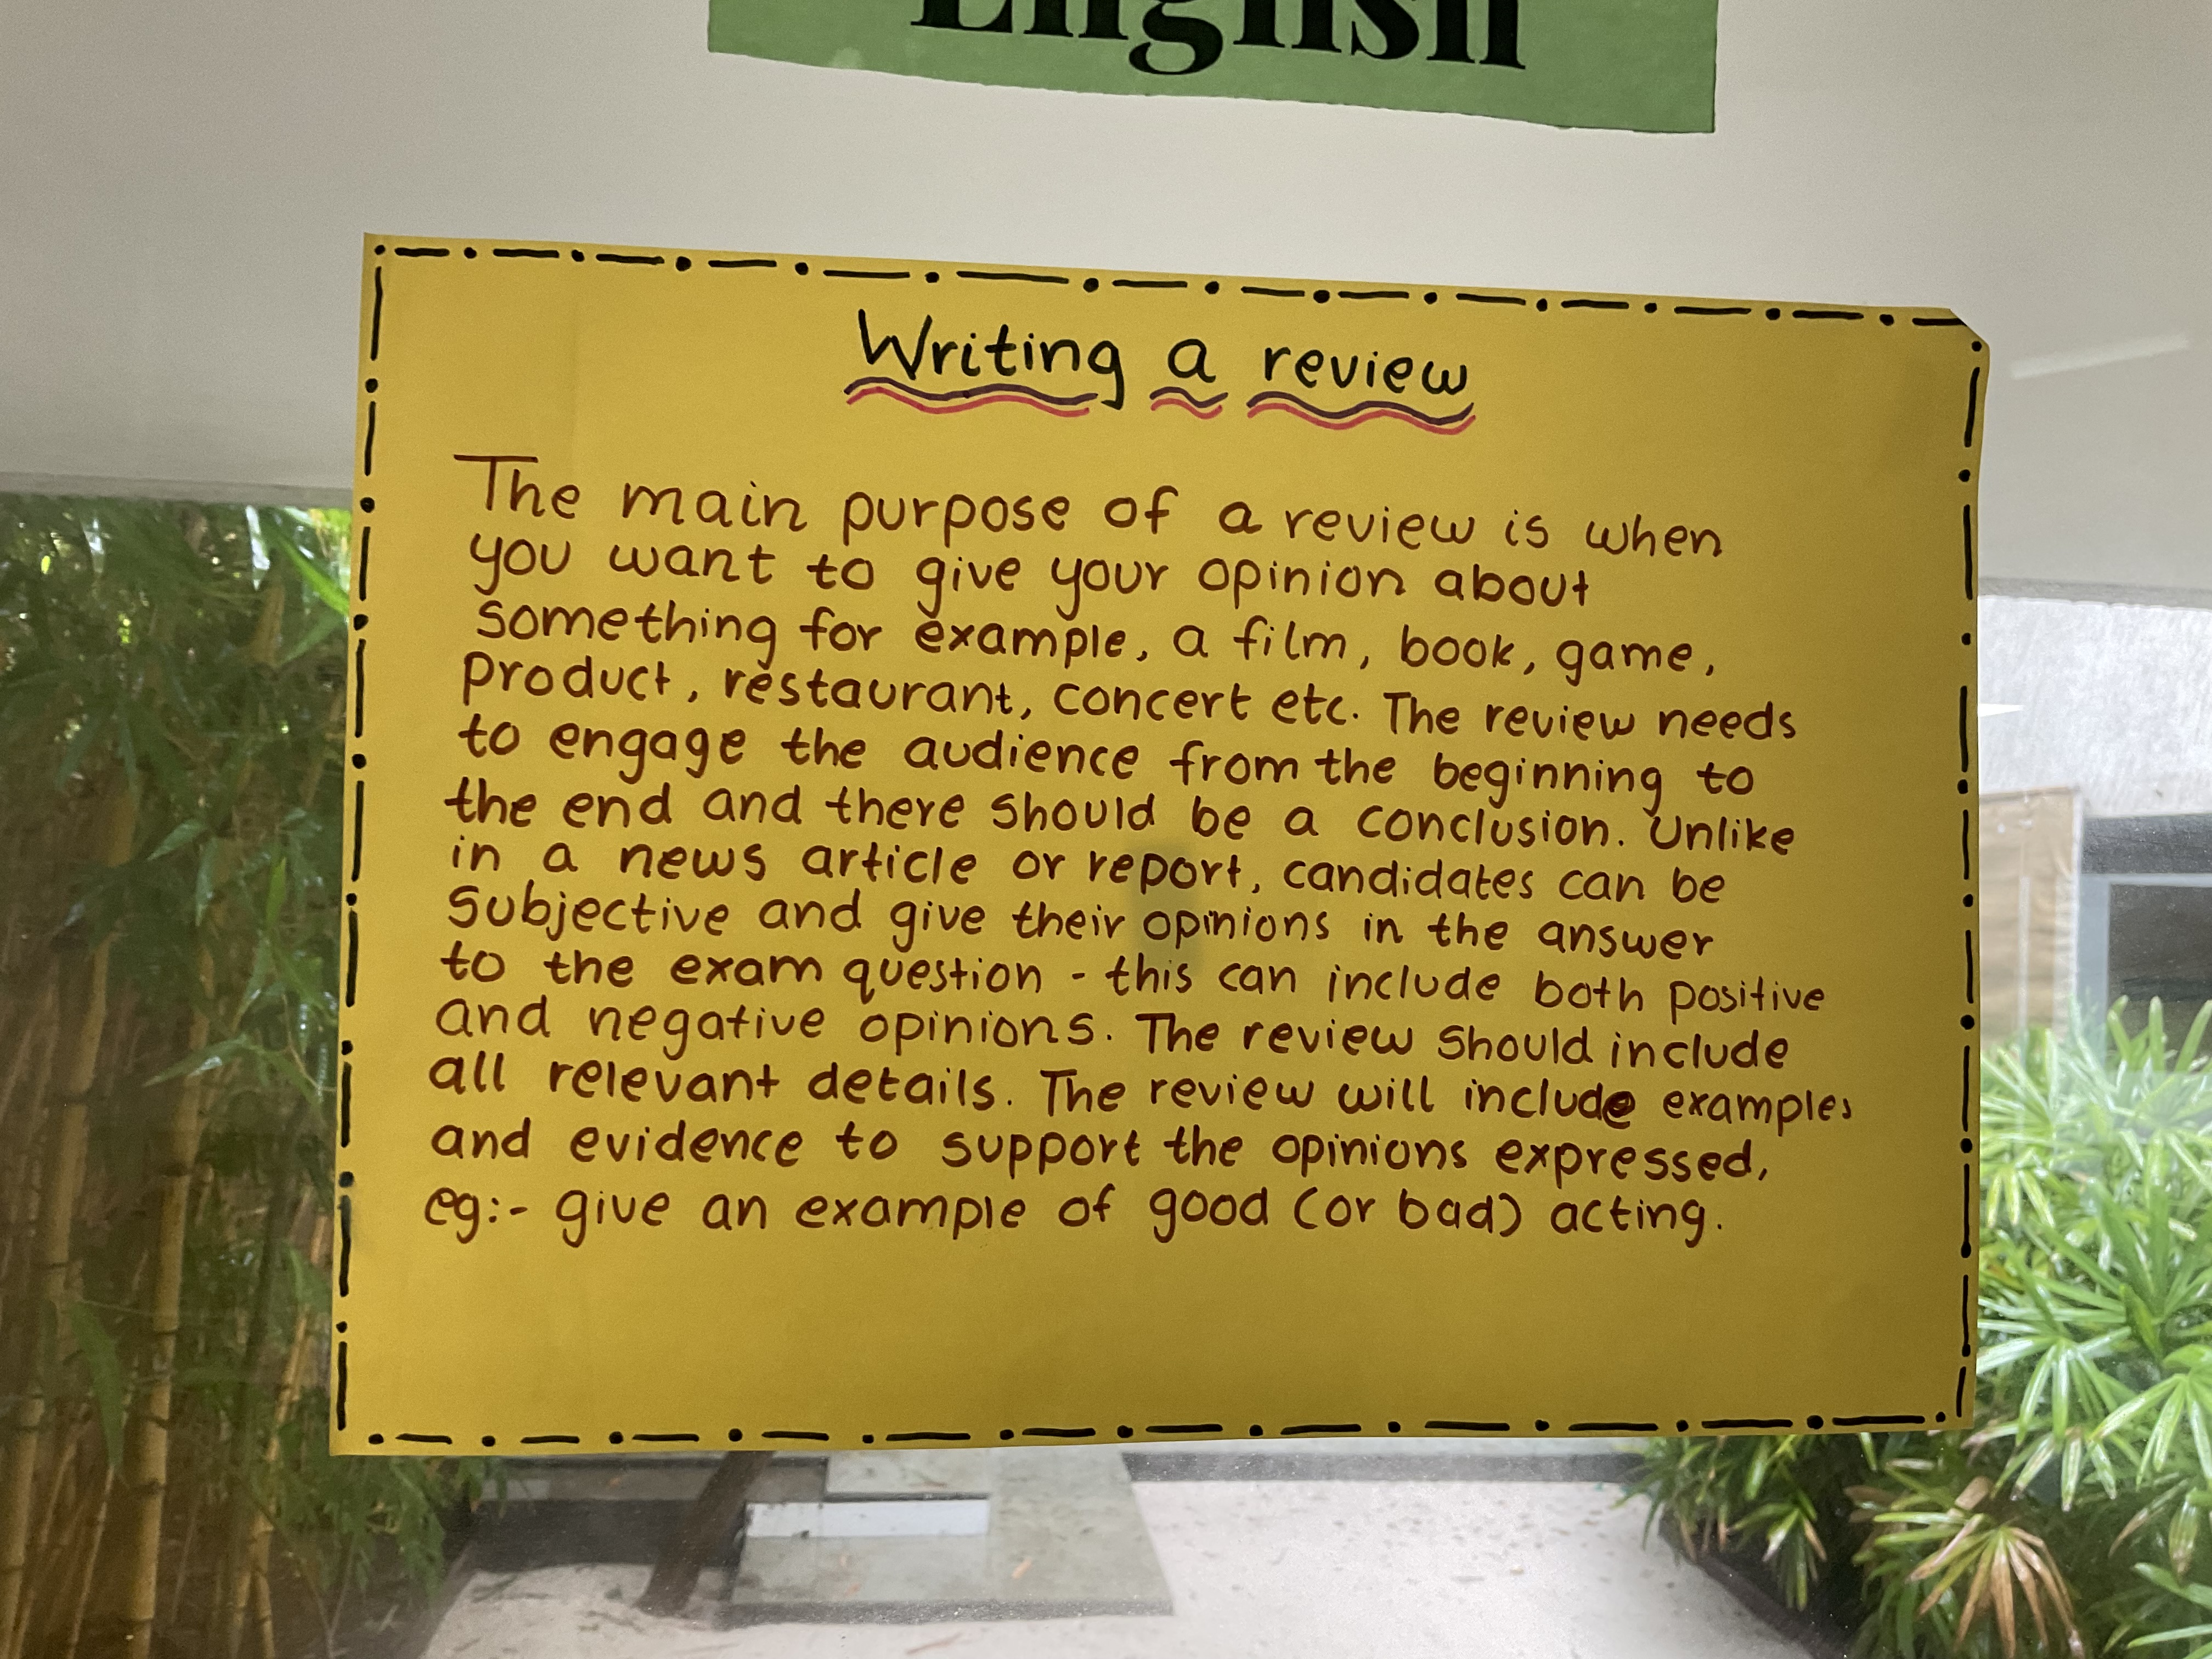 English
Writing a review
The main purpose of a review is when
you want to give your opinion about
something for example, a film, book, game,
product, restaurant, concert etc. The review needs
to engage the audience from the beginning to
the end and there should be a conclusion. Unlike
in a news article or report, candidates can be
subjective and give their opinions in the answer
to the exam question - this can include both positive
and negative opinions. The review should include
all relevant details. The review will include examples
and evidence to support the opinions expressed,
eg:- give an example of good (or bad) acting.